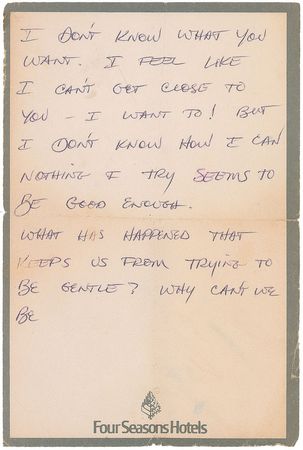 I DON'T KNOW WHAT YOU
WANT. I FEEL LIKE
I CAN'T GET CLOSE TO
YOU – I WANT TO! BUT
I DON'T KNOW HOW I CAN
NOTHING I TRY SEEMS TO
BE GOOD ENOUGH.
WHAT HAS HAPPENED THAT
KEEPS US FROM TRYING TO
BE GENTLE? WHY CAN'T WE
BE
Four Seasons Hotels